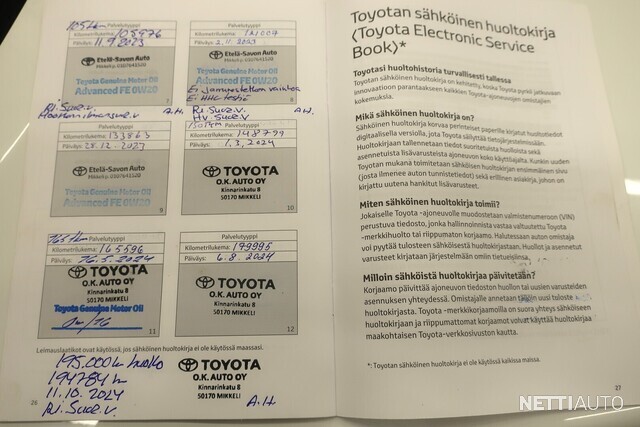 105tkm Palvelutyyppi
Kilometrilukema: 105976
Päiväys: 11.9.2023
Etelä-Savon Auto
Mikkeli p. 0107641520
Toyota Genuine Motor Oil
Advanced FE 0W20
7
Ri. Suoz.v. A.H.
Palvelutyyppi
Kilometrilukema:
Päiväys: 2.11.2023
Etelä-Savon Auto
Mikkeli p. 0107641520
Toyota Genuine Motor Oil
Advanced FE 0W20
Ri. Suoz.v.
Hv. Suoz.v.
Palvelutyyppi
Kilometrilukema: 133863
Päiväys: 28.12.2023
Etelä-Savon Auto
Mikkeli p. 0107641520
Toyota Genuine Motor Oil
Advanced FE 0W20
9
Palvelutyyppi
Kilometrilukema: 148799
Päiväys: 1.3.2024
TOYOTA
O.K. AUTO OY
Kinnarinkatu 8
50170 MIKKELI
10
165tkm Palvelutyyppi
Kilometrilukema: 165596
Päiväys: 16.5.2024
TOYOTA
O.K. AUTO OY
Kinnarinkatu 8
50170 MIKKELI
Toyota Genuine Motor Oil
11
Palvelutyyppi
Kilometrilukema: 179995
Päiväys: 6.8.2024
TOYOTA
O.K. AUTO OY
Kinnarinkatu 8
50170 MIKKELI
12
Leimauslaatikot ovat käytössä, jos sähköinen huoltokirja ei ole käytössä maassasi.
195.000km huolto
194784km
11.10.2024
Ri. Suoz.v.
TOYOTA
O.K. AUTO OY
Kinnarinkatu 8
50170 MIKKELI
A.H.
26
Toyotan sähköinen huoltokirja
(Toyota Electronic Service
Book)*
Toyotasi huoltohistoria turvallisesti tallessa
Toyotan sähköinen huoltokirja on kehitetty, koska Toyota pyrkii jatkuvaan
innovaatioon parantaakseen kaikkien Toyota-ajoneuvojen omistajien
kokemuksia.
Mikä sähköinen huoltokirja on?
Sähköinen huoltokirja korvaa perinteiset paperille kirjatut huoltotiedot
digitaalisella versiolla, jota Toyota säilyttää tietojärjestelmissään.
Huoltokirjaan tallennetaan tiedot suoritetuista huolloista sekä
asennetuista lisävarusteista ajoneuvon koko käyttöajalta. Kunkin uuden
Toyotan mukana toimitetaan sähköisen huoltokirjan ensimmäinen sivu
(josta ilmenee auton tunnistetiedot) sekä erillinen asiakirja, johon on
kirjattu uutena hankitut lisävarusteet.
Miten sähköinen huoltokirja toimii?
Jokaiselle Toyota -ajoneuvolle muodostetaan valmistenumeroon (VIN)
perustuva tiedosto, jonka hallinnoinnista vastaa valtuutettu Toyota
-merkkihuolto tai riippumaton korjaamo. Halutessaan auton omistaja
voi pyytää tulosteen sähköisestä huoltokirjastaan. Huollot ja asennetut
varusteet kirjataan järjestelmään omiin tietueisiinsa.
Milloin sähköistä huoltokirjaa päivitetään?
Korjaamo päivittää ajoneuvon tiedoston huollon tai uusien varusteiden
asennuksen yhteydessä. Omistajalle annetaan tällöin uusi tuloste
huoltokirjasta. Toyota -merkkikorjaamoilla on suora yhteys sähköiseen
huoltokirjaan ja riippumattomat korjaamot voivat käyttää huoltokirjaa
maakohtaisen Toyota-verkkosivuston kautta.
*: Toyotan sähköinen huoltokirja ei ole käytössä kaikissa maissa.
27
NETTIAUTO